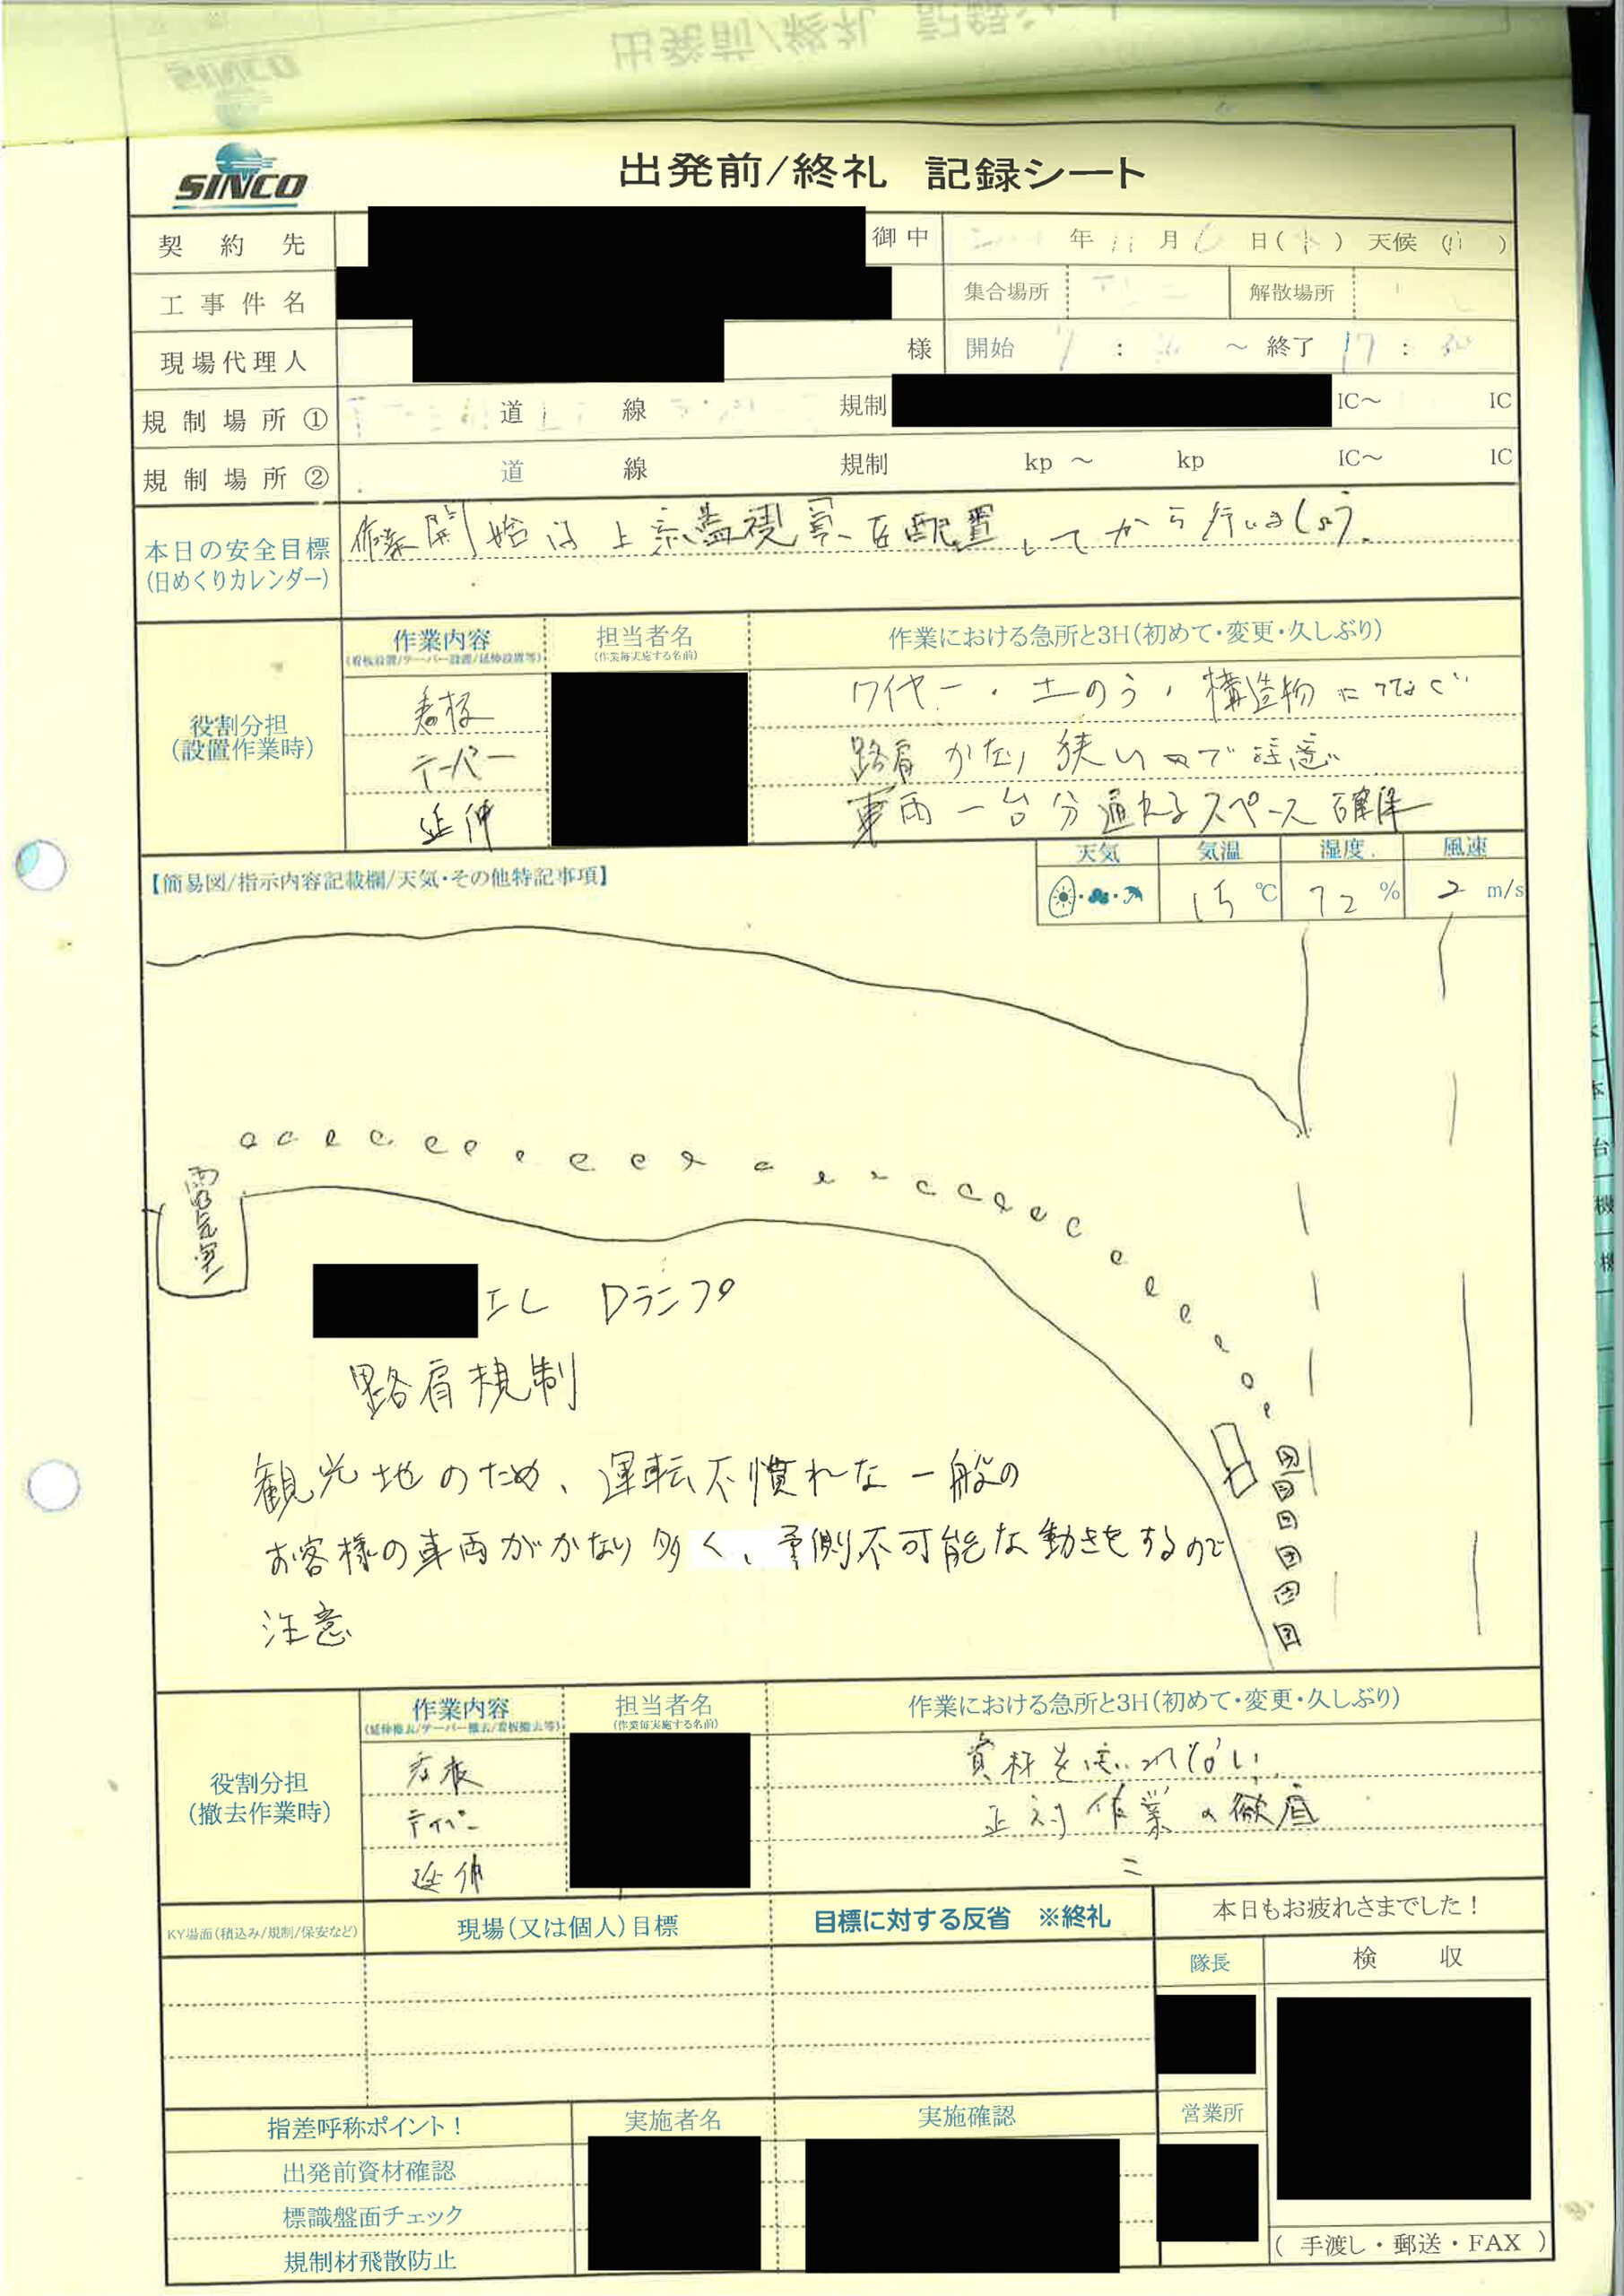 出発前/終礼 記録シート
SINCO
契約先 御中 年 11 月 日( ) 天候( )
工事件名 集合場所 解散場所
現場代理人 様 開始 7 : ～ 終了 17 : 30
規制場所① 道 線 規制 IC～ IC
規制場所② 道 線 規制 kp ～ kp IC～ IC
本日の安全目標
(日めくりカレンダー)
作業開始は上系監視員を配置してから行いましょう。
作業内容 担当者名 作業における急所と3H(初めて・変更・久しぶり)
(看板設置/テーパー設置/延伸設置等) (作業毎実施する名前)
役割分担
(設置作業時)
看板 ワイヤー・土のう・構造物につなぐ
テーパー 路肩かなり狭いので注意
延伸 車両一台分通れるスペース確保
【簡易図/指示内容記載欄/天気・その他特記事項】
天気 気温 湿度 風速
15 ℃ 72 % 2 m/s
電気室
Dランプ
路肩規制
観光地のため、運転不慣れな一般の
お客様の車両がかなり多く、予測不可能な動きをするので
注意
作業内容 担当者名 作業における急所と3H(初めて・変更・久しぶり)
(延伸撤去/テーパー撤去/看板撤去等) (作業毎実施する名前)
役割分担
(撤去作業時)
看板 資材を忘れない
テーパー 正対作業の徹底
延伸
KY場面(積込み/規制/保安など) 現場(又は個人)目標 目標に対する反省 ※終礼 本日もお疲れさまでした!
隊長 検収
指差呼称ポイント! 実施者名 実施確認 営業所
出発前資材確認
標識盤面チェック
規制材飛散防止
(手渡し・郵送・FAX)